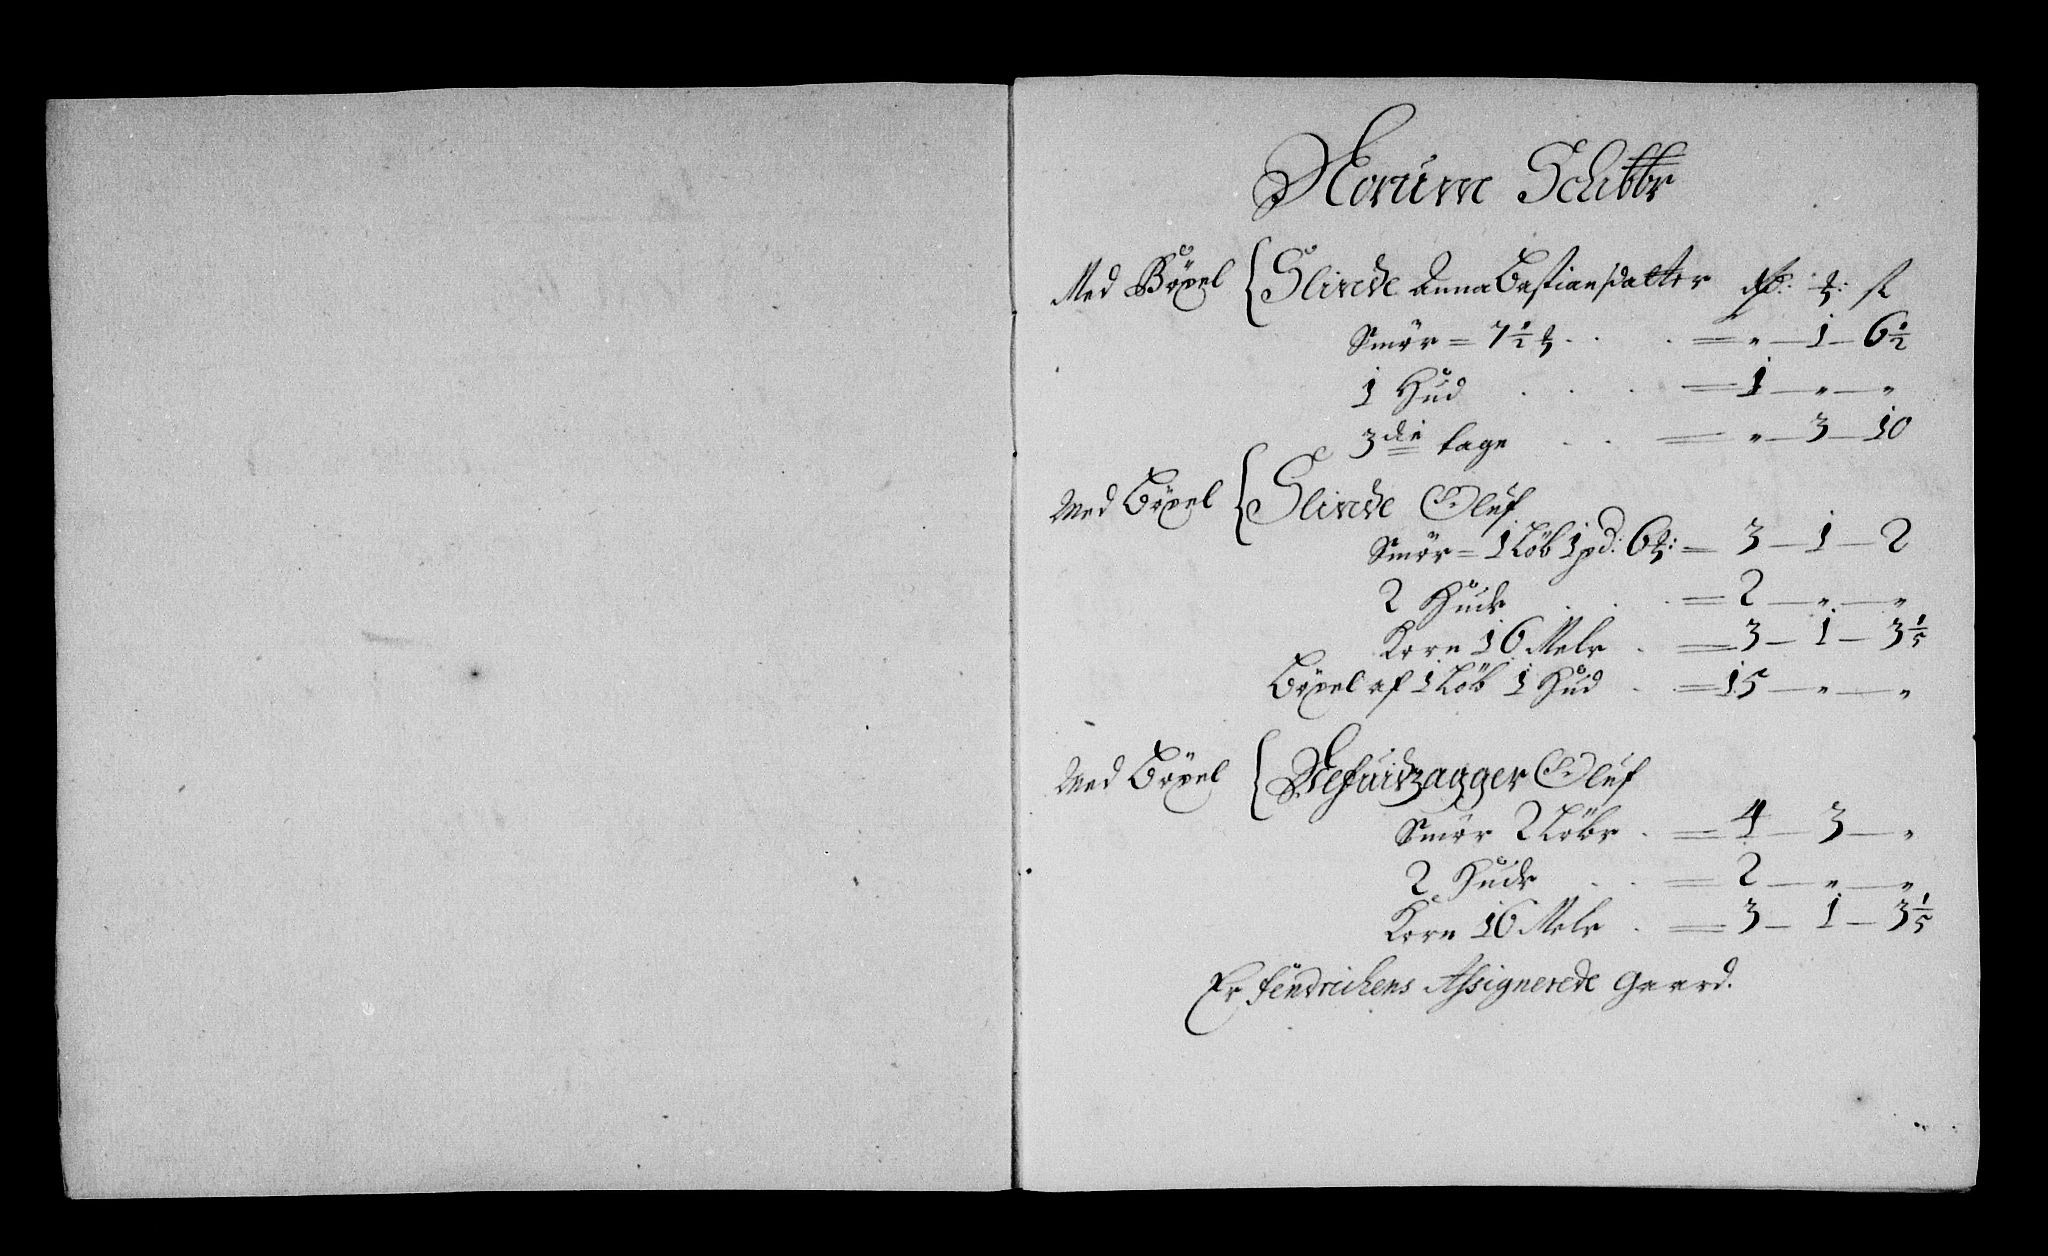 Norum Schibbr
Med Böxel { Slinde Anna Bastiansdatter Rd: ℥: ß
Smör = 7½ ℥ . . . = „ — 1 — 6½
1 Hud . . . = 1 — „ — „
3die tage . . = „ — 3 — 10
Med Böxel { Slinde Oluf
Smör = 1 Löb 1 pd: 6 ℥: = 3 — 1 — 2
2 Huder . . . = 2 — „ — „
Korn 16 Meler . = 3 — 1 — 3⅕
Böxel af 1 Löb 1 Hud . = 15 — „ — „
Med Böxel { Oluf
Smör 2 Löber . = 4 — 3 — „
2 Huder . . = 2 — „ — „
Korn 16 Meler . = 3 — 1 — 3⅕
Er fendrichens Assignerede Gaard.